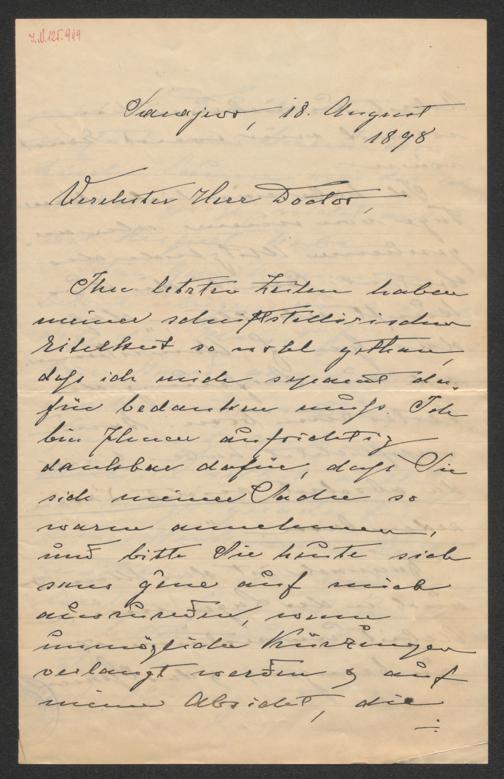 I.N. 125.949
Sarajewo, 18. August
1898
Verehrter Herr Doctor,
Ihre letzten Zeilen haben
meiner schriftstellerischen
Eitelkeit so wohl gethan,
daß ich mich separat da-
für bedanken muß. Ich
bin Ihnen aufrichtig
dankbar dafür, daß Sie
sich meiner Sache so
warm annehmen,
und bitte Sie heute sich
sans gêne auf mich
auszureden, wenn
unmögliche Kürzungen
verlangt werden & auf
meine Absicht, die